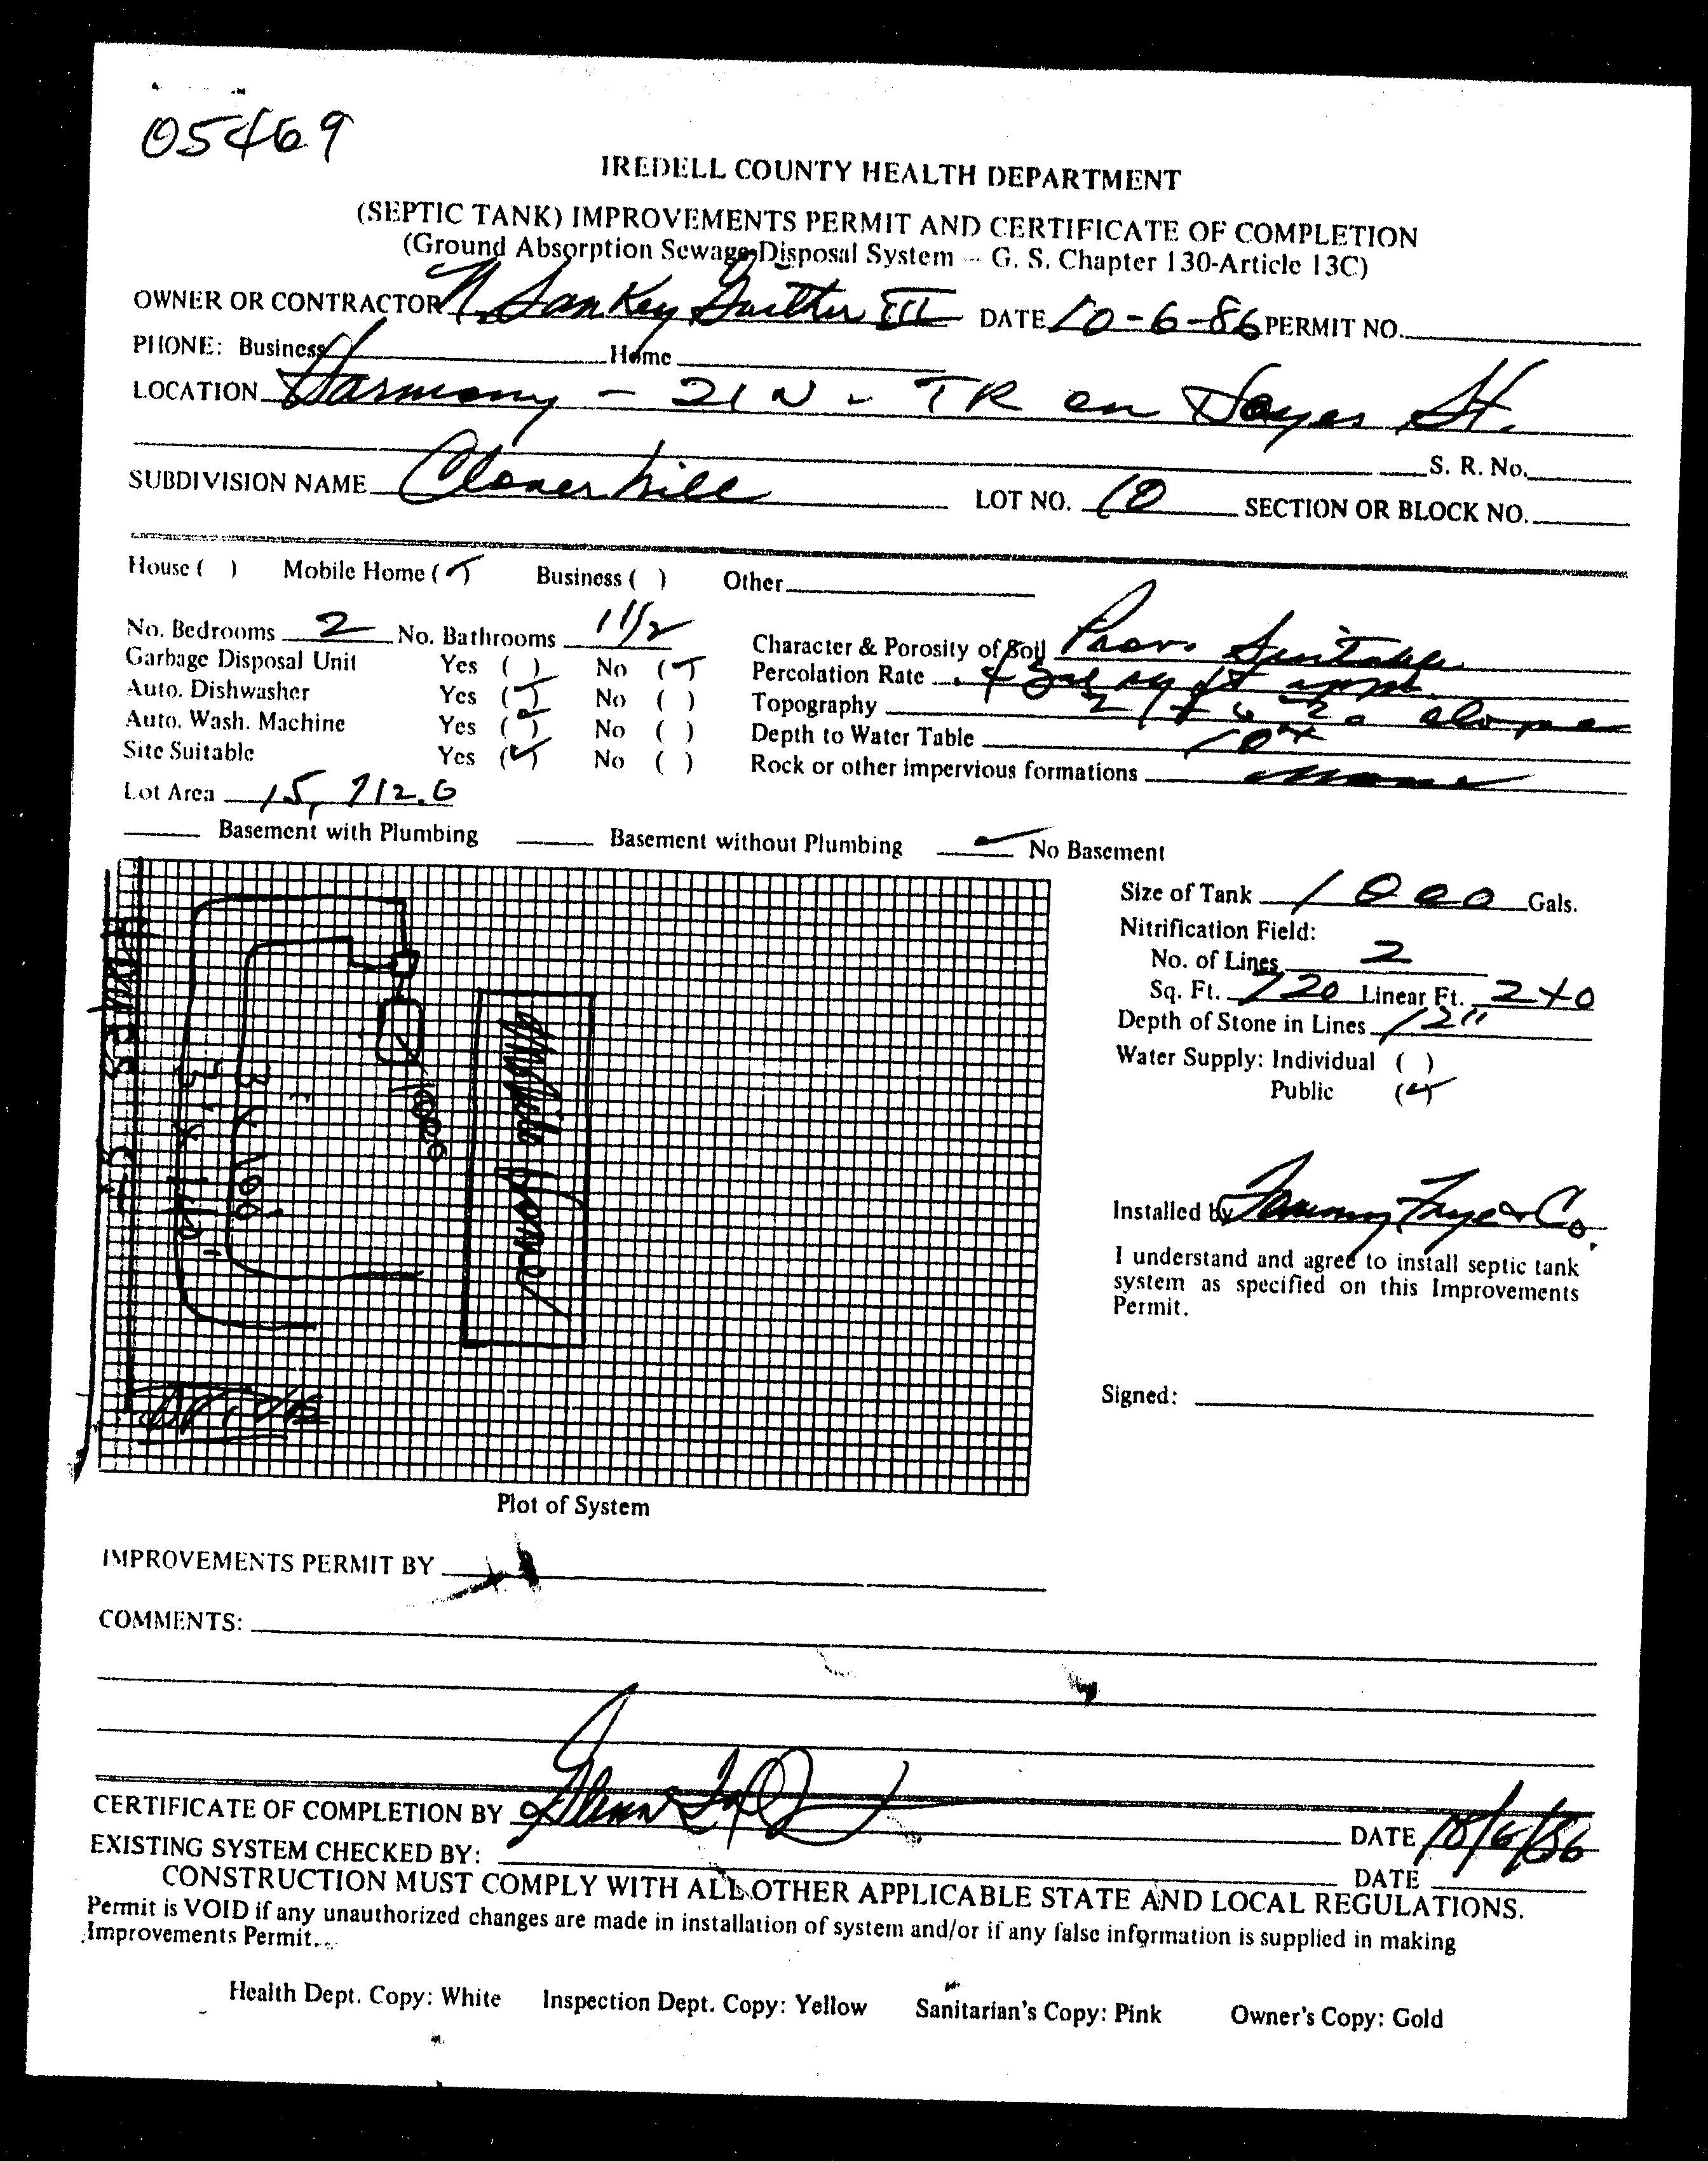 05469
IREDELL COUNTY HEALTH DEPARTMENT
(SEPTIC TANK) IMPROVEMENTS PERMIT AND CERTIFICATE OF COMPLETION
(Ground Absorption Sewage Disposal System -- G. S. Chapter 130-Article 13C)
OWNER OR CONTRACTOR N. Sankey Gaither III DATE 10-6-86 PERMIT NO.
PHONE: Business Home
LOCATION Harmony - 21 N - TR on Hayes St.
S. R. No.
SUBDIVISION NAME Cloverhill LOT NO. 10 SECTION OR BLOCK NO.
House ( ) Mobile Home (✓) Business ( ) Other
No. Bedrooms 2 No. Bathrooms 1 1/2 Character & Porosity of Soil Prov. Suitable
Garbage Disposal Unit Yes ( ) No (✓) Percolation Rate
Auto. Dishwasher Yes (✓) No ( ) Topography slope
Auto. Wash. Machine Yes (✓) No ( ) Depth to Water Table 10+
Site Suitable Yes (✓) No ( ) Rock or other impervious formations none
Lot Area 15,712.6
Basement with Plumbing Basement without Plumbing ✓ No Basement
Size of Tank 1000 Gals.
Nitrification Field:
No. of Lines 2
Sq. Ft. 720 Linear Ft. 240
Depth of Stone in Lines 12"
Water Supply: Individual ( )
Public (✓)
HAYMES ST
3 x 140'
3 x 100'
1000
Mobile Home
Drive
Installed by Tommy Frye & Co.
I understand and agree to install septic tank
system as specified on this Improvements
Permit.
Signed:
Plot of System
IMPROVEMENTS PERMIT BY
COMMENTS:
CERTIFICATE OF COMPLETION BY Glenn DATE 10/6/86
EXISTING SYSTEM CHECKED BY: DATE
CONSTRUCTION MUST COMPLY WITH ALL OTHER APPLICABLE STATE AND LOCAL REGULATIONS.
Permit is VOID if any unauthorized changes are made in installation of system and/or if any false information is supplied in making
Improvements Permit.
Health Dept. Copy: White Inspection Dept. Copy: Yellow Sanitarian's Copy: Pink Owner's Copy: Gold